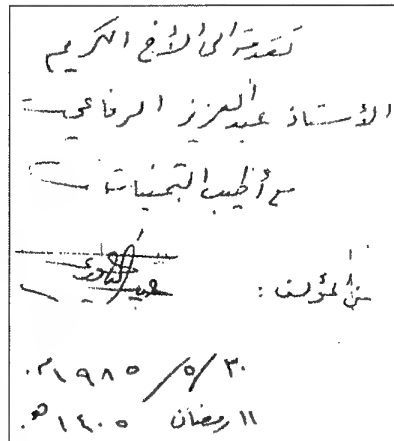 تقدمة الى الأخ الكريم
الأستاذ عبد العزيز الرفاعي
مع أطيب التمنيات
من المؤلف :
٣٠ / ٥ / ١٩٨٥م.
١١ رمضان ١٤٠٥ هـ.